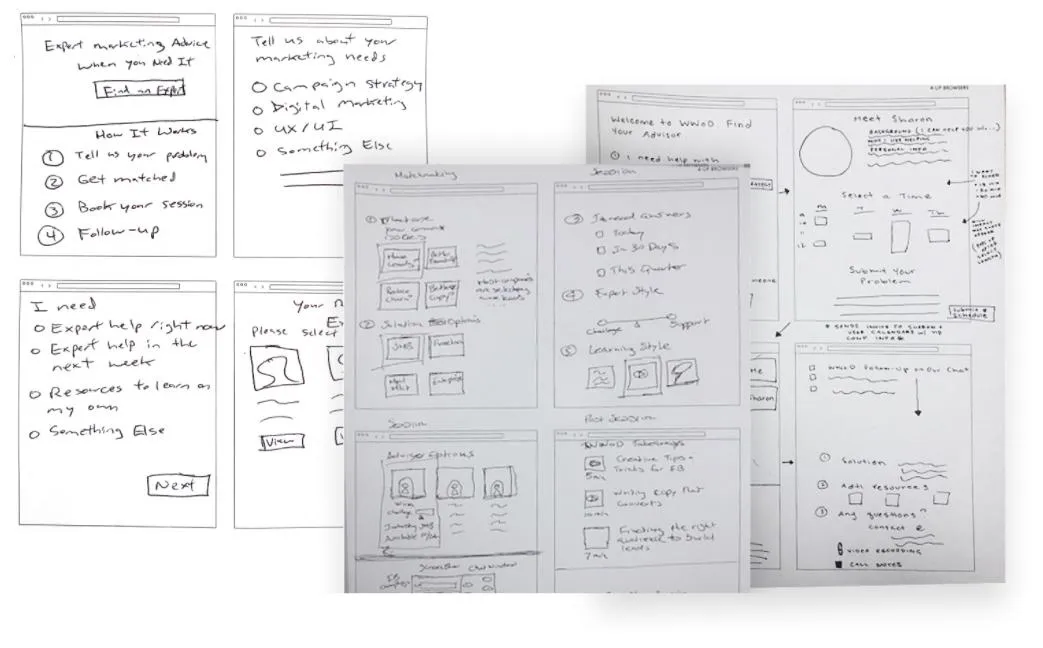 Expert marketing Advice
When you Need It
Find an Expert
How It Works
1 Tell us your problem
2 Get matched
3 Book your session
4 Follow-up
Tell us about your
marketing needs
Campaign Strategy
Digital Marketing
UX/UI
Something Else
I need
Expert help right now
Expert help in the
next week
Resources to learn on
my own
Something Else
Next
Your
Please select
View
Matchmaking
Session
1
2 Solution Options
SMB
Function
Enterprise
3 I need answers
Today
In 30 Days
This Quarter
4 Expert Style
Challenge
Support
5 Learning Style
Session
Advisor Options
Post Session
WWoD Takeaways
Creative Tips +
Tricks for FB
5 min
Writing Copy that
Converts
10 min
Finding the right
audience to build
leads
7 min
4 UP BROWSERS
4 UP BROWSERS
Welcome to WWoD Find
Your Advisor
1 I need help with
Meet Sharon
BACKGROUND (I CAN HELP YOU
PERSONAL INFO
Select a Time
M
T
W
Th
Submit Your
Problem
Submit &
Schedule
* SENDS INVITE TO SHARON +
USER CALENDARS W/
CONF INFO *
Me
Sharon
WWoD Follow-Up on Our Chat
1 Solution
2 Add'l resources
3 Any questions?
contact
VIDEO RECORDING
CALL NOTES